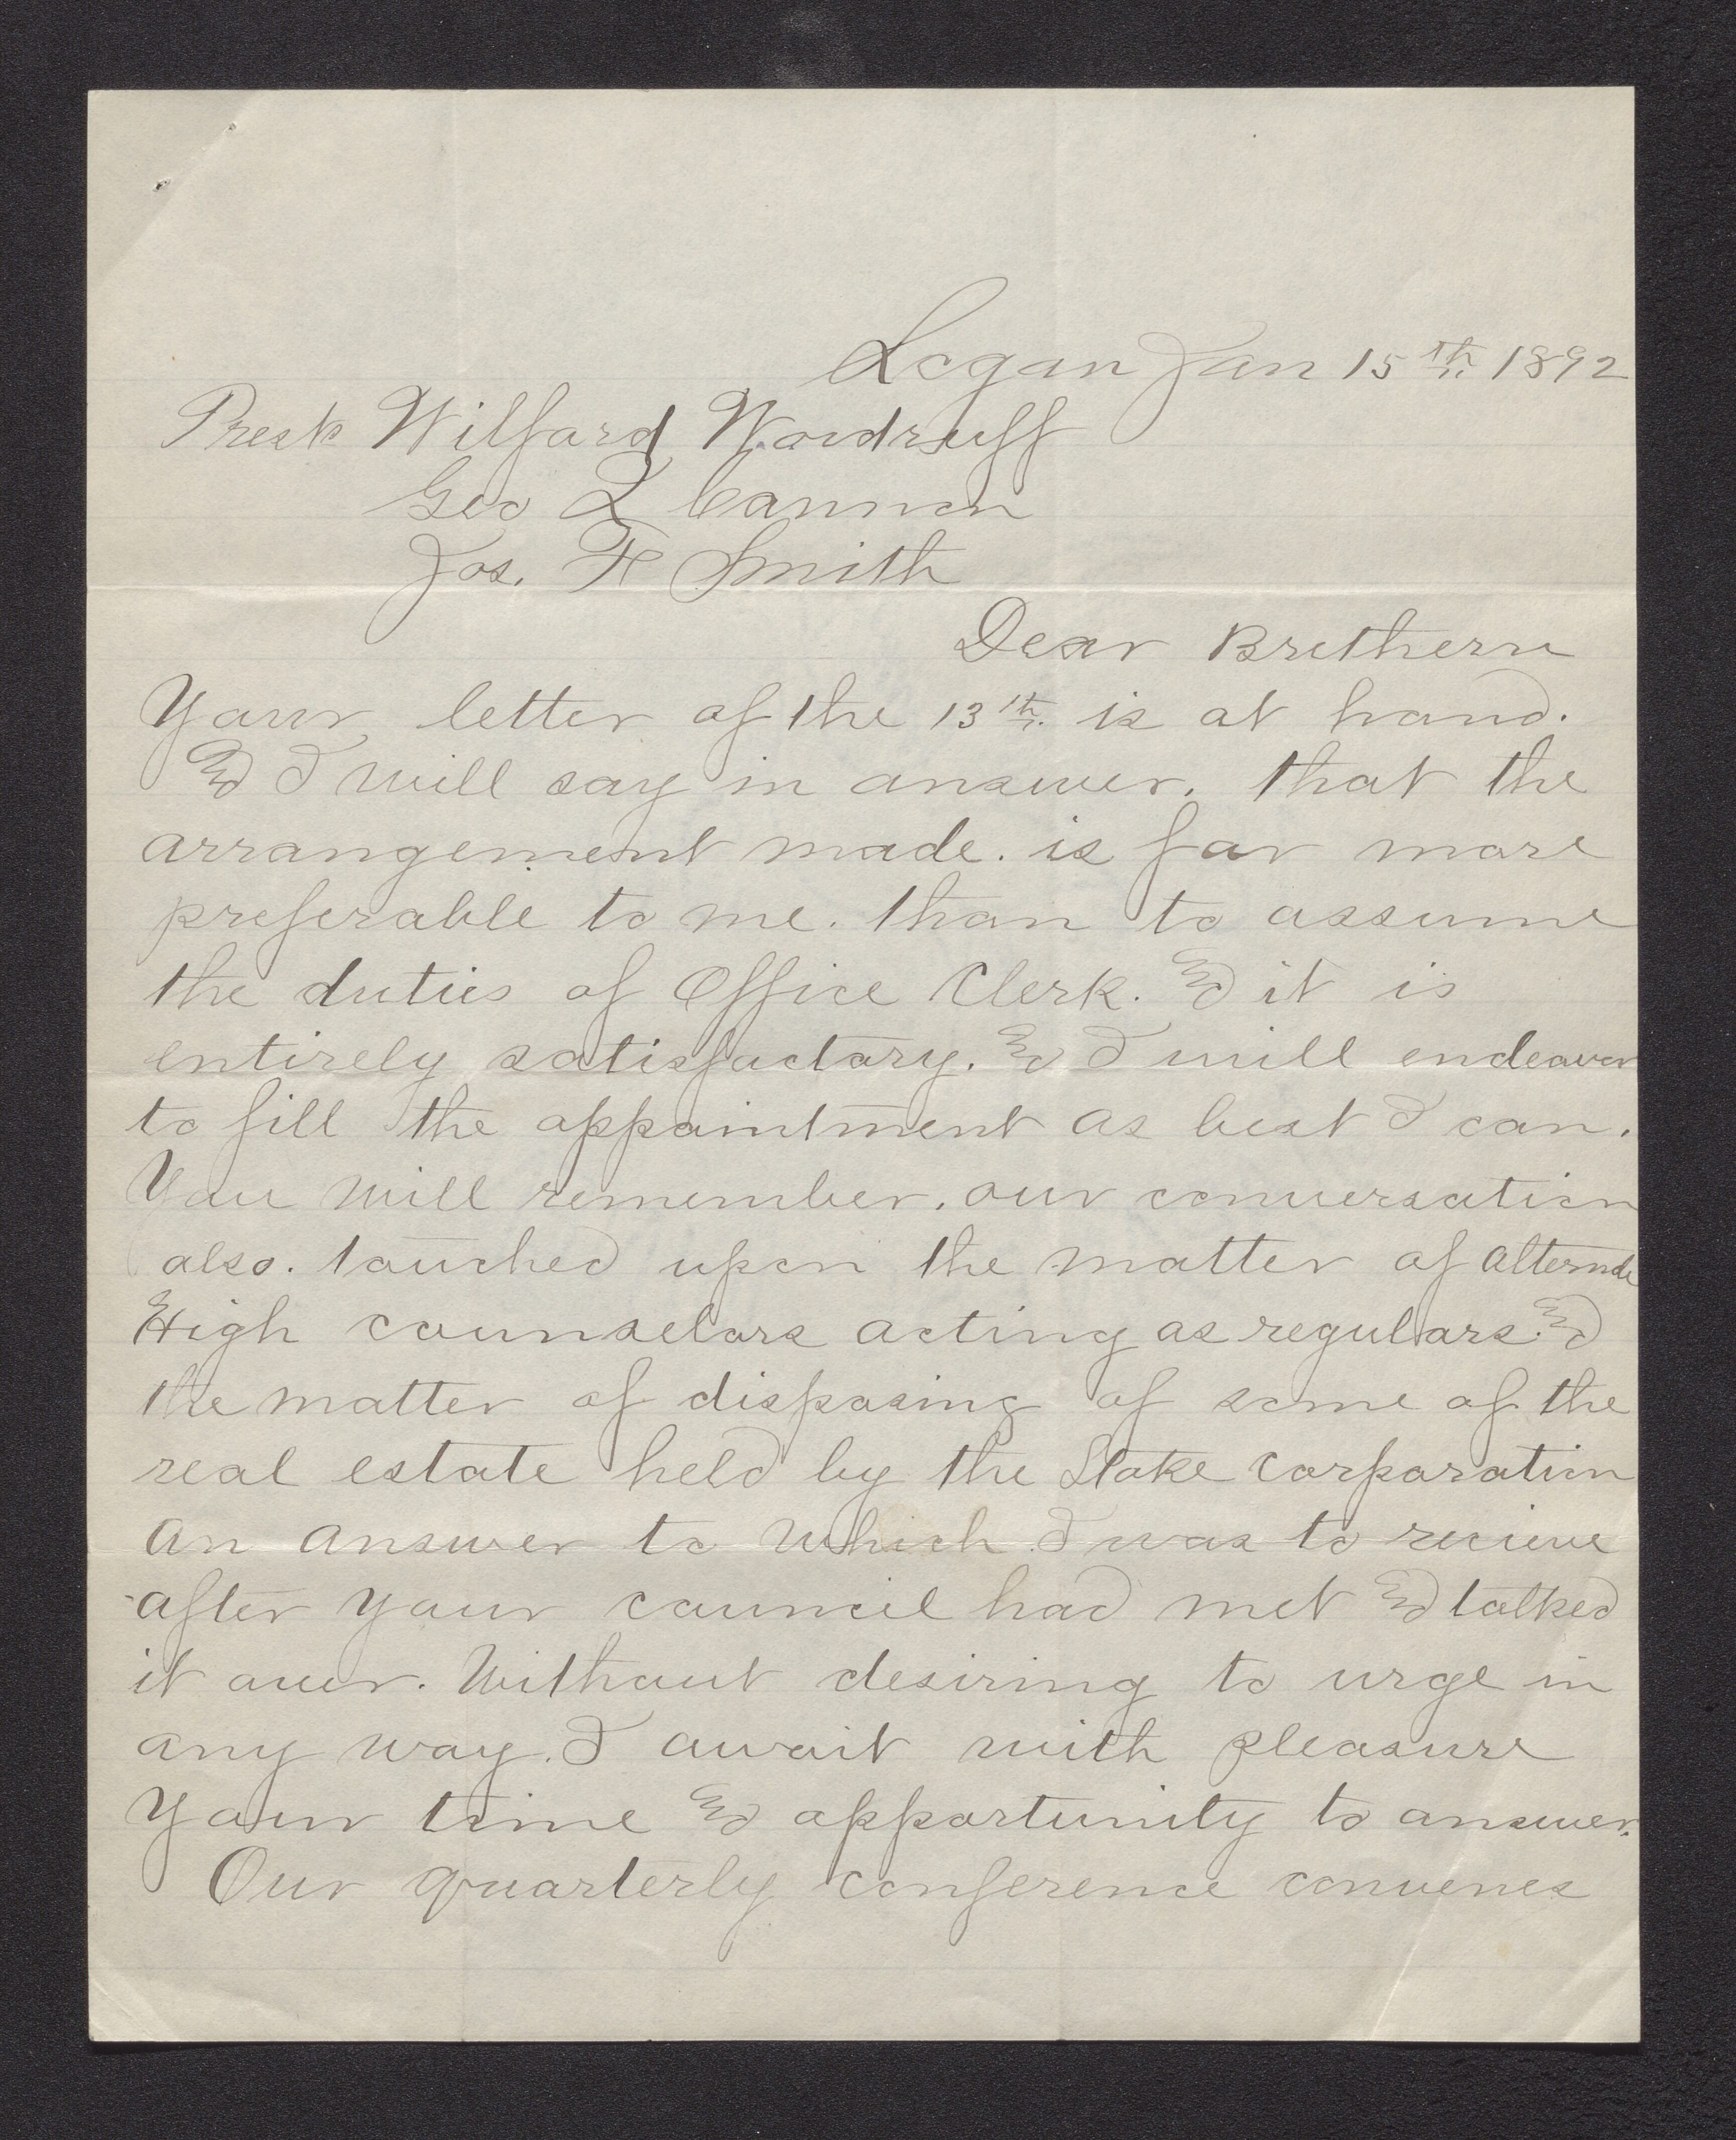 Logan Jan 15th. 1892
Prest Wilford Woodruff
Geo Q Cannon
Jos. F Smith
Dear Brethern
Your letter of the 13th. is at hand.
& I will say in answer. that the
arrangement made. is far more
preferable to me. than to assume
the duties of Office Clerk. & it is
entirely satisfactory. & I will endeavor
to fill the appointment as best I can.
You will remember. our conversation
also. touched upon the matter of alternate
High counselors acting as regulars. &
the matter of disposing of some of the
real estate held by the Stake Corporation
an answer to which I was to recieve
after your council had met & talked
it over. Without desiring to urge in
any way. I await with pleasure
Your time & opportunity to answer.
Our quarterly conference convenes